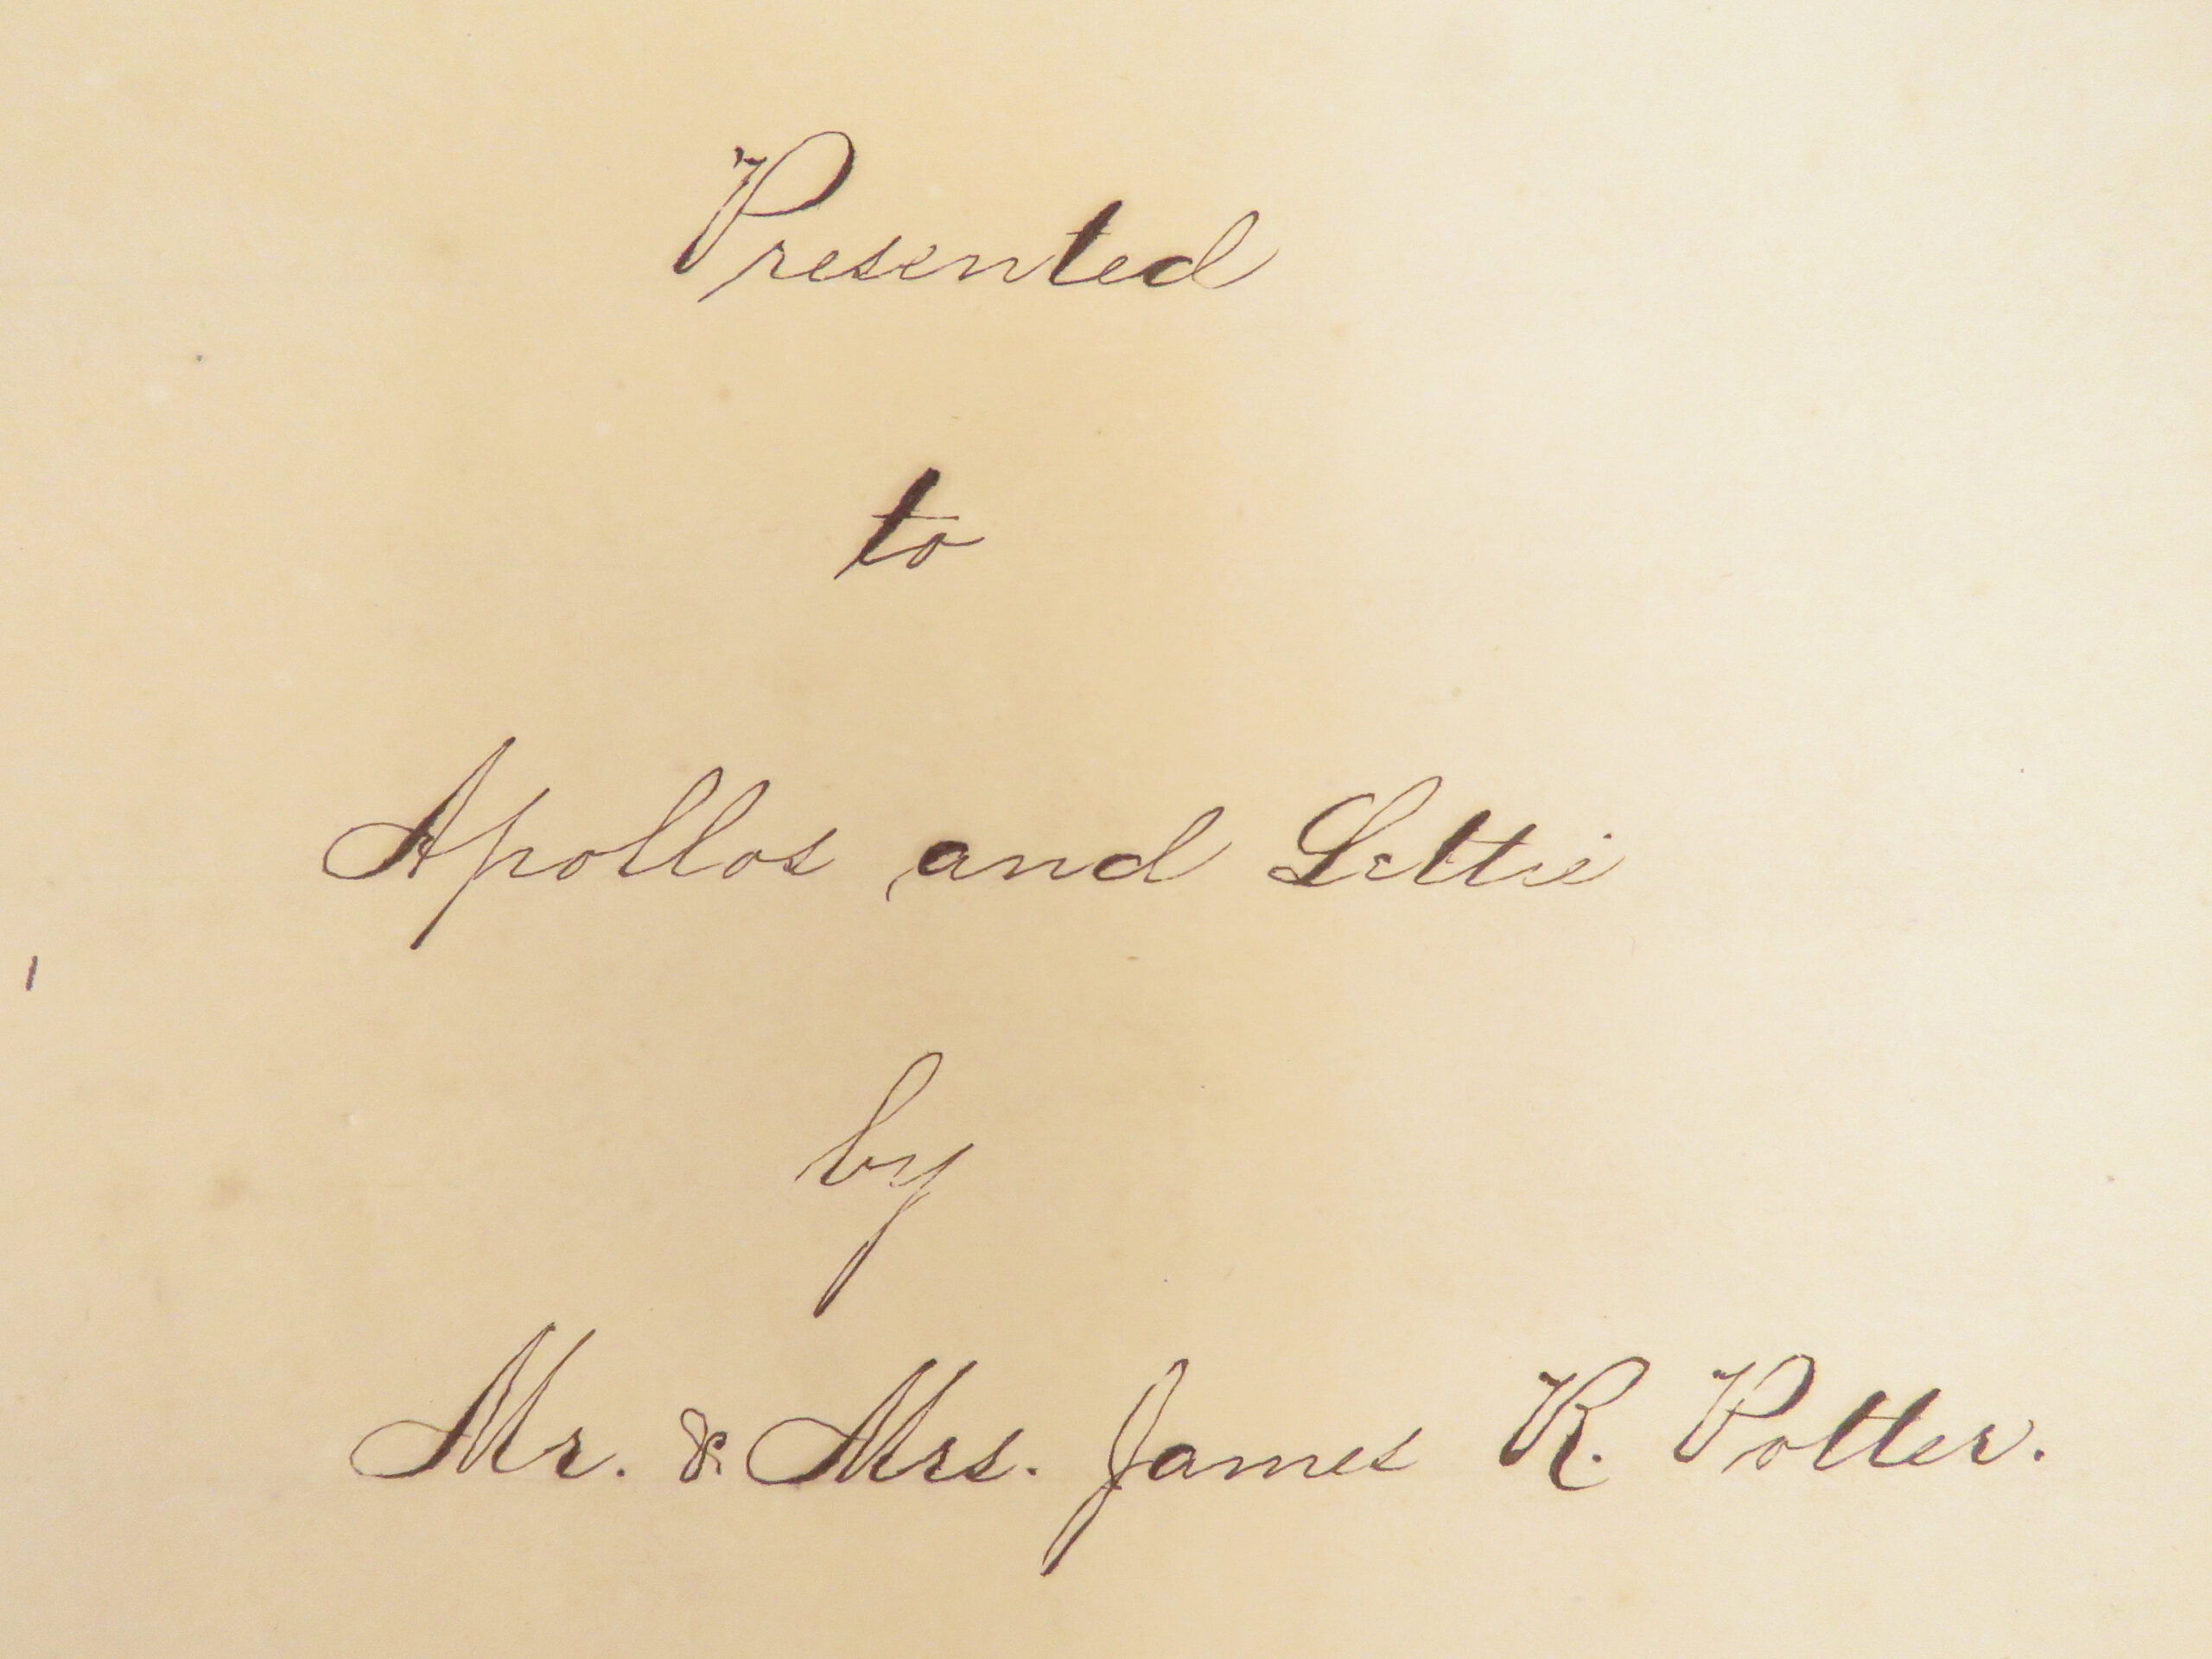 Presented
to
Apollos and Lettie
by
Mr. & Mrs. James R. Potter.